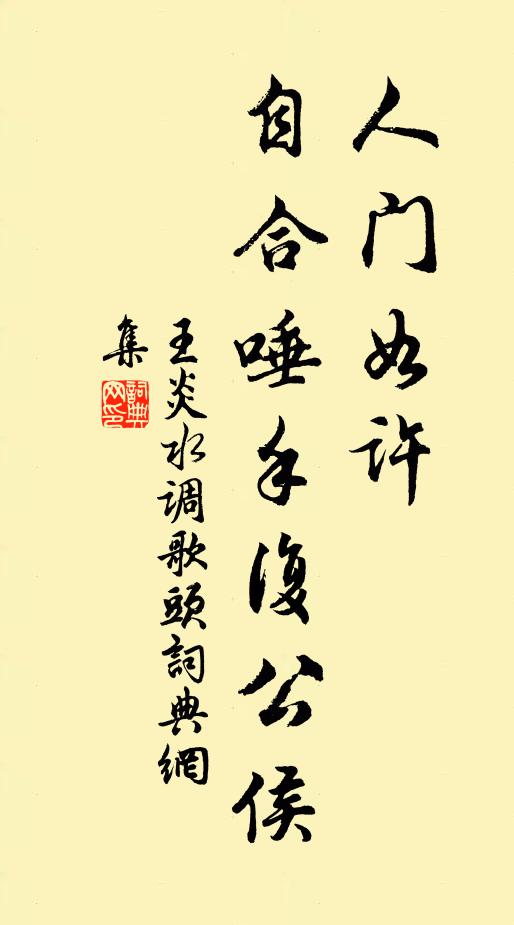 人门如许
自合唾手復公侯
王炎水调歌頭詞典網
集
詞典
网印